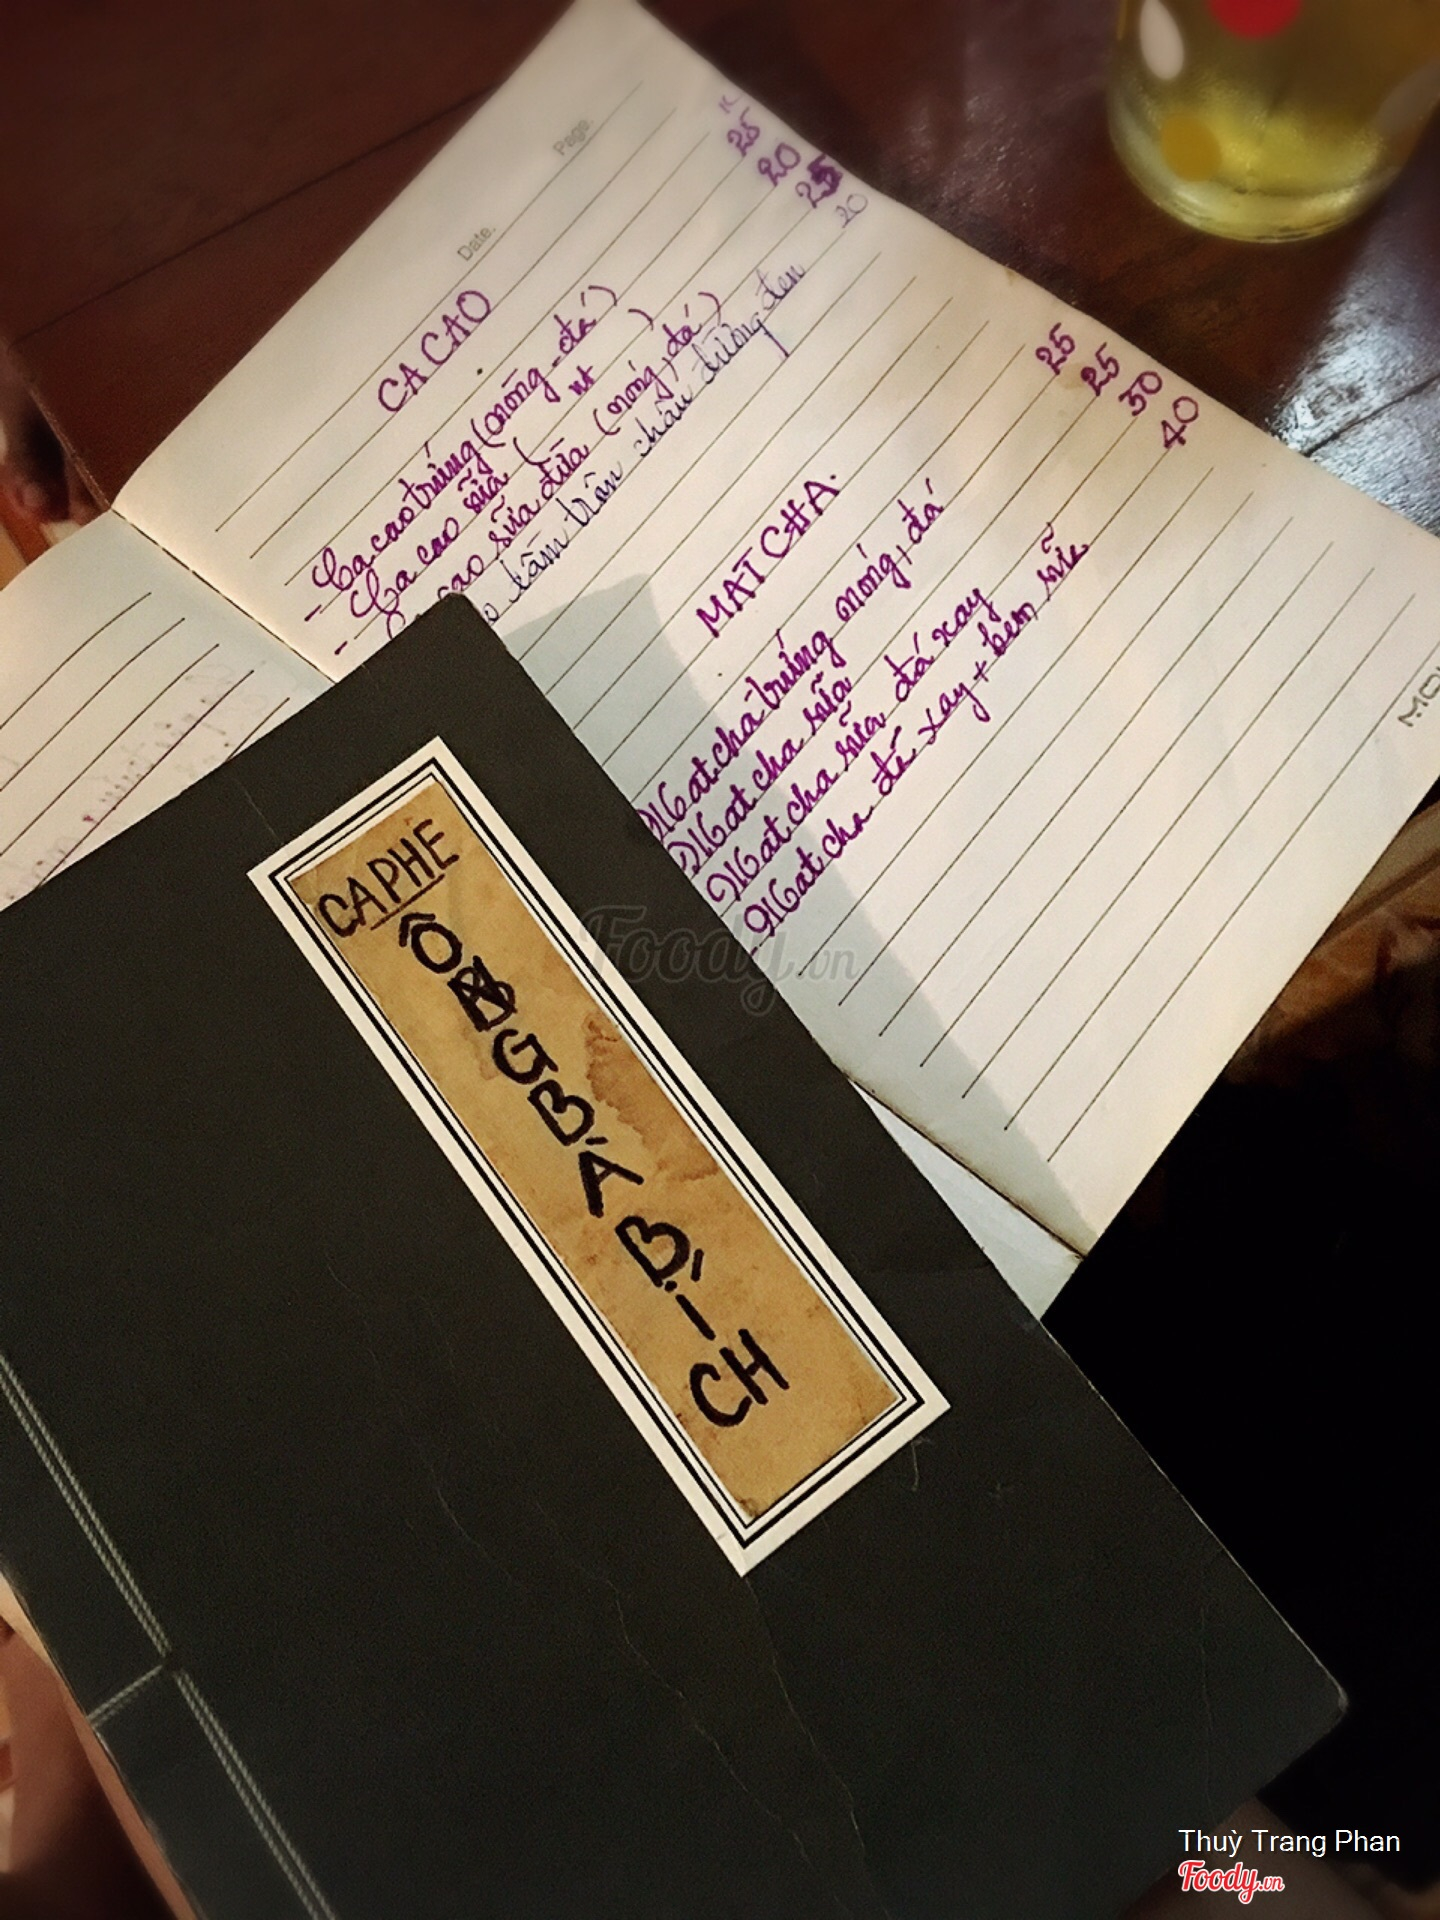 Date.
Page.
K
CA CAO
- Ca cao trứng (nóng - đá) 25
- Ca cao sữa ( nt ) 20
- Ca cao sữa dừa (nóng, đá) 25
trân châu đường đen 20
MATCHA.
Matcha trứng nóng, đá 25
Matcha sữa 25
Matcha sữa đá xay 30
Matcha đá xay + kem sữa 40
CAPHE
ÔNG BÁ BÍCH
Foody.vn
Thuỳ Trang Phan
Foody.vn